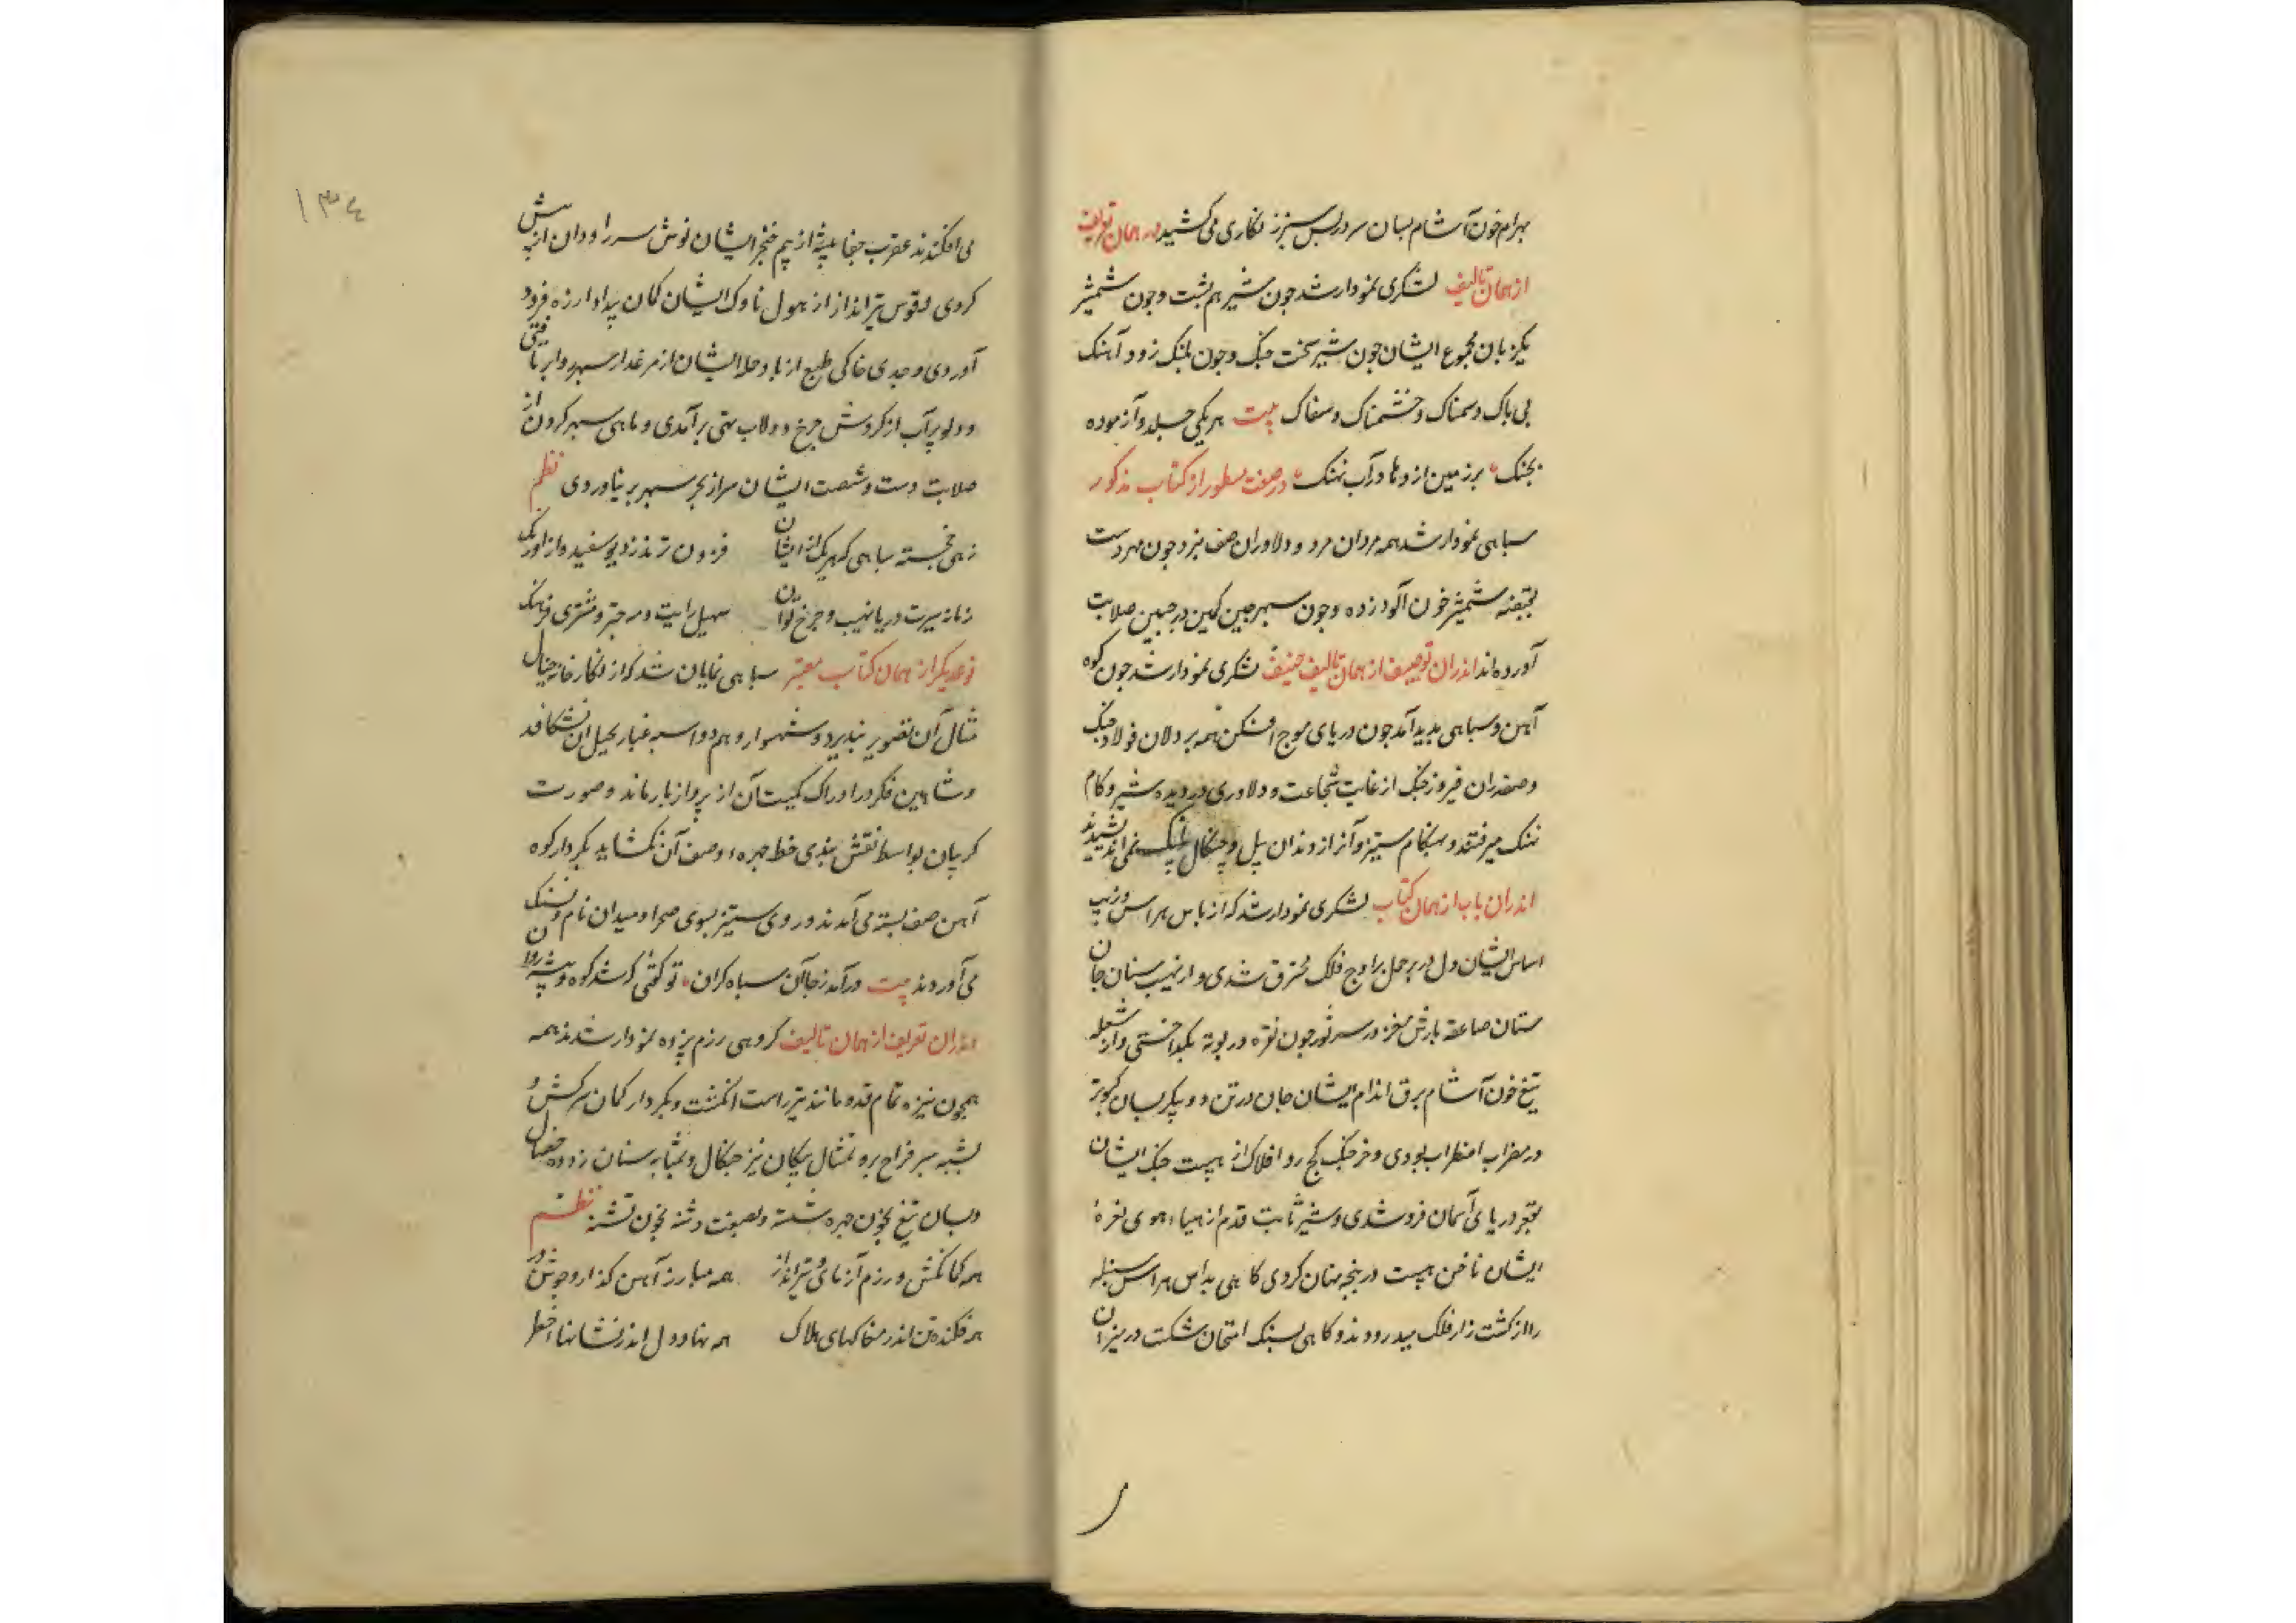 بهرام خون آشام بسان سر در لبس سبز زنگاری می کشید در همان تعریف
از همان تالیف لشکری نمودار شد چون شیر هم پشت و چون شمشیر
یکزبان مجموع ایشان چون شیر سخت جنگ و چون پلنگ زود آهنک
بی باک و سمناک و خشمناک و سفاک بیت هر یکی جلد و آزموده
بجنک برزمین اژدها در آب نهنک در صفت مسطور از کتاب مذکور
سپاهی نمودار شد همه مردان مرد و دلاوران صف نبرد چون مهر دست
بقبضه شمشیر خون آلود زده و چون سپهر چین کین در جبین صلابت
آورده اند اندران توصیف از همان تالیف حنیف لشکری نمودار شد چون کوه
آهن و سپاهی پدید آمد چون دریای موج افکن همه پردلان فولاد جنگ
و صفدران فیروز جنگ از غایت شجاعت و دلاوری در دیده شیر و کام
نهنک میرفتند و بهنکام ستیز و آز از دندان پیل و چنگال پلنک نمی اندیشیدند
اندران باب از همان کتاب لشکری نمودار شد که از باس هراس و زیب
اساس ایشان دل در بر حمل بر اوج فلک محترق شدی و از نهیب سنان جان
ستان صاعقه بارش مغز در سر ثور چون نقره در بوته بگداختی و از شعله
تیغ خون آشام برق اندام ایشان جان در تن دو پیکر بسان کبوتر
در مضراب اضطراب بودی و خرچنگ کج رو افلاک از هیبت جنک ایشان
بقعر دریای آسمان فرو شدی و شیر ثابت قدم از هیاهوی نعرهٔ
ایشان ناخن هیبت در پنجه پنهان کردی کاهی بداس هراس سنبله
را از کشت زار فلک میدرودند و کاهی بسنک امتحان شکست در میزان
١٣٤
می افکندند عقرب جفا پیشه از بیم خنجر ایشان نوش سر را و دان از پیش
کردی و قوس تیرانداز از هول ناوک ایشان کمان بیداد از زه فرود
آوردی و جدی خاکی طبع از باد حمله ایشان از مرغزار سپهر و ابر تافتی
و دلو پر آب از گردش چرخ دولاب تهی برآمدی و ماهی سپهر کردون از
صلابت دست و شصت ایشان سر از بحر سپهر بر نیاوردی نظم
زهی خجسته سپاهی که هریک از ایشان فزون ترند ز دیو سفید و از اورنک
زمانه سیرت دریا نهیب و چرخ توان سهیل رایت و مه چتر و مشتری فرهنک
نوع دیگر از همان کتاب معتبر سپاهی نمایان شد که از نگار خانه خیال
مثال آن تصویر نپذیرد و شهسوار وهم دو اسبه غبار خیل آن نشکافد
و شاهین فکر در ادراک کمیت آن از پرواز باز ماند و صورت
کریبان بواسطه نقش بندی خط چهره وصف آن نکشاید بکردار کوه
آهن صف بسته می آمدند و روی ستیز بسوی صحرا و میدان نام و ننک
می آوردند بیت درآمد ز جا آن سپاه کران تو گفتی که شد کوه و بیشه روان
اندران تعریف از همان تالیف کروهی رزم پژوه نمودار شدند همه
همچون نیزه تمام قد و مانند تیر راست انگشت و بکردار کمان سرکش و
بشبه سپر فراخ بر و تمثال پیکان تیز چنگال و بمثابه سنان زدوده خصال
و بسان تیغ بخون چهره شسته و بصفت دشنه بخون تشنه نظم
همه کماکش و رزم آزمای و تیرانداز همه مبارز آهن گذار و جوشن در
همه فکنده تن اندر مغاکهای هلاک همه نهاده دل اندر نشانهاء خطر